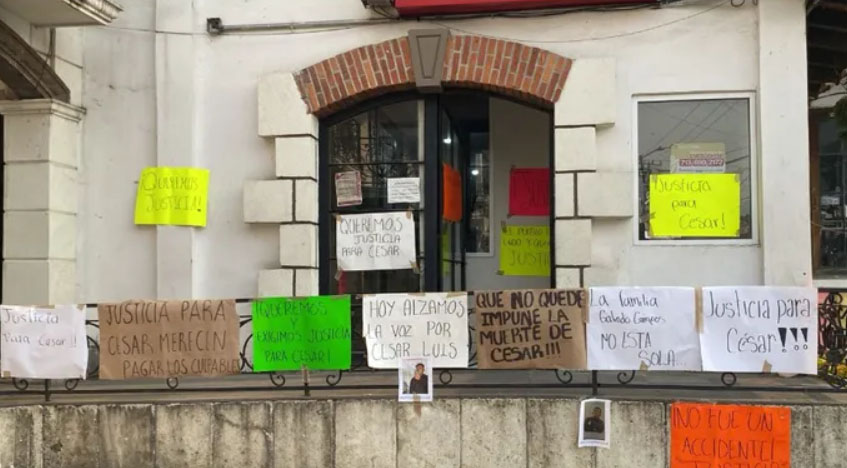 QUEREMOS
JUSTICIA!
QUEREMOS
JUSTICIA
PARA CESAR
JUSTICIA
para
Cesar!
Justicia
Para Cesar!!
JUSTICIA PARA
CESAR MERECEN
PAGAR LOS CULPABLES
!QUEREMOS
Y
EXIGIMOS JUSTICIA
PARA CESAR!
HOY ALZAMOS
LA VOZ POR
CESAR LUIS
QUE NO QUEDE
IMPUNE LA
MUERTE DE
CESAR!!!
La familia
NO ESTA
SOLA...
Justicia para
César!!!
¡NO FUE UN
ACCIDENTE!